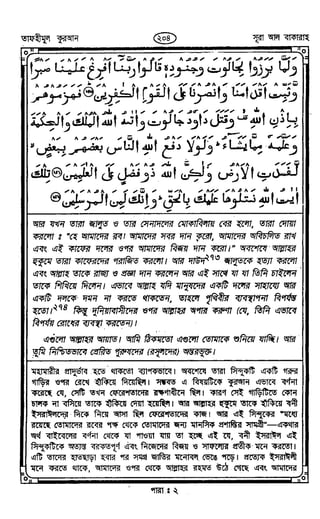 তাফহীমুল কুরআন
২০৪
সূরা আল বাকারাহ
وَلَمَّا بَرَزُوا لِجَالُوتَ وَجُنُودِهِ قَالُوا رَبَّنَا أَفْرِغْ عَلَيْنَا صَبْرًا
وَّثَبِّتْ أَقْدَامَنَا وَانْصُرْنَا عَلَى الْقَوْمِ الْكٰفِرِينَ ۝ فَهَزَمُوهُمْ
بِإِذْنِ اللّٰهِ ۙ وَقَتَلَ دَاوٗدُ جَالُوتَ وَاٰتٰىهُ اللّٰهُ الْمُلْكَ وَالْحِكْمَةَ
وَعَلَّمَهٗ مِمَّا يَشَآءُ ؕ وَلَوْلَا دَفْعُ اللّٰهِ النَّاسَ بَعْضَهُمْ بِبَعْضٍ ۙ
لَّفَسَدَتِ الْأَرْضُ وَلٰكِنَّ اللّٰهَ ذُو فَضْلٍ عَلَى الْعٰلَمِينَ ۝ تِلْكَ
اٰيٰتُ اللّٰهِ نَتْلُوهَا عَلَيْكَ بِالْحَقِّ ؕ وَإِنَّكَ لَمِنَ الْمُرْسَلِينَ ۝
আর যখন তারা জালুত ও তার সেনাদলের মোকাবিলায় বের হলো, তারা দোয়া
করলো ঃ "হে আমাদের রব! আমাদের সবর দান করো, আমাদের অবিচলিত রাখ
এবং এই কাফের দলের ওপর আমাদের বিজয় দান করো।" অবশেষে আল্লাহর
হুকুমে তারা কাফেরদের পরাজিত করলো। আর দাউদ২৭৩ জালুতকে হত্যা করলো
এবং আল্লাহ তাকে রাজ্য ও প্রজ্ঞা দান করলেন আর এই সাথে যা যা তিনি চাইলেন
তাকে শিখিয়ে দিলেন। এভাবে আল্লাহ যদি মানুষদের একটি দলের সাহায্যে আর
একটি দলকে দমন না করতে থাকতেন, তাহলে পৃথিবীর ব্যবস্থাপনা বিপর্যস্ত
হতো।২৭৪ কিন্তু দুনিয়াবাসীদের ওপর আল্লাহর অপার করুণা (যে, তিনি এভাবে
বিপর্যয় রোধের ব্যবস্থা করতেন)।
এগুলো আল্লাহর আয়াত। আমি ঠিকমতো এগুলো তোমাকে শুনিয়ে যাচ্ছি। আর
তুমি নিশ্চিতভাবে প্রেরিত পুরুষদের (রসূলদের) অন্তরভুক্ত।
মহামারীর প্রাদুর্ভাব হতে থাকলো ব্যাপকভাবে। অবশেষে তারা সিন্দুকটি একটি গরুর
গাড়ির ওপর রেখে হাঁকিয়ে দিয়েছিল। সম্ভবত এ বিষয়টিকে কুরআন এভাবে বর্ণনা
করেছে যে, সেটি তখন ফেরেশতাদের রক্ষণাধীনে ছিল। কারণ সেই গাড়িটিতে কোন
চালক না বসিয়ে তাকে হাঁকিয়ে দেয়া হয়েছিল। আর আল্লাহর হুকুমে তাকে হাঁকিয়ে বনী
ইসরাঈলদের দিকে নিয়ে আসা ছিল ফেরেশতাদের কাজ। আর এই সিন্দুকের "মধ্যে
রয়েছে তোমাদের রবের পক্ষ থেকে তোমাদের জন্য মানসিক প্রশান্তির সামগ্রী"—একথার
অর্থ বাইবেলের বর্ণনা থেকে যা পাওয়া যায় তা হচ্ছে এই যে, বনী ইসরাঈল এই
সিন্দুকটিকে অত্যন্ত বরকতপূর্ণ এবং নিজেদের বিজয় ও সাফল্যের প্রতীক মনে করতো।
এটি তাদের হাতছাড়া হবার পর সমগ্র জাতির মনোবল ভেঙে পড়ে। প্রত্যেক ইসরাঈলী
মনে করতে থাকে, আমাদের ওপর থেকে আল্লাহর রহমত উঠে গেছে এবং আমাদের
পারা ঃ ২